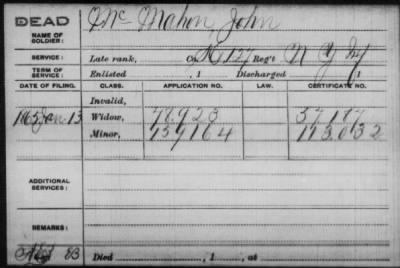 DEAD
NAME OF SOLDIER: Mc Mahon, John
SERVICE: Late rank, Co. 127 Reg't N Y Inf
TERM OF SERVICE: Enlisted , 1 Discharged , 1
DATE OF FILING. CLASS. APPLICATION NO. LAW. CERTIFICATE NO.
Invalid,
1865 Jan. 13 Widow, 78.923 57187
Minor, 159164 113.032
ADDITIONAL SERVICES:
REMARKS:
Died , 1 , at